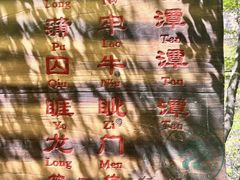 Long Lao Tan
蒲 牢 潭
Pu Lao Tan
囚 牛 潭
Qiu Niu Tan
睚 眦 潭
Ya Zi Tan
龙 门
Long Men